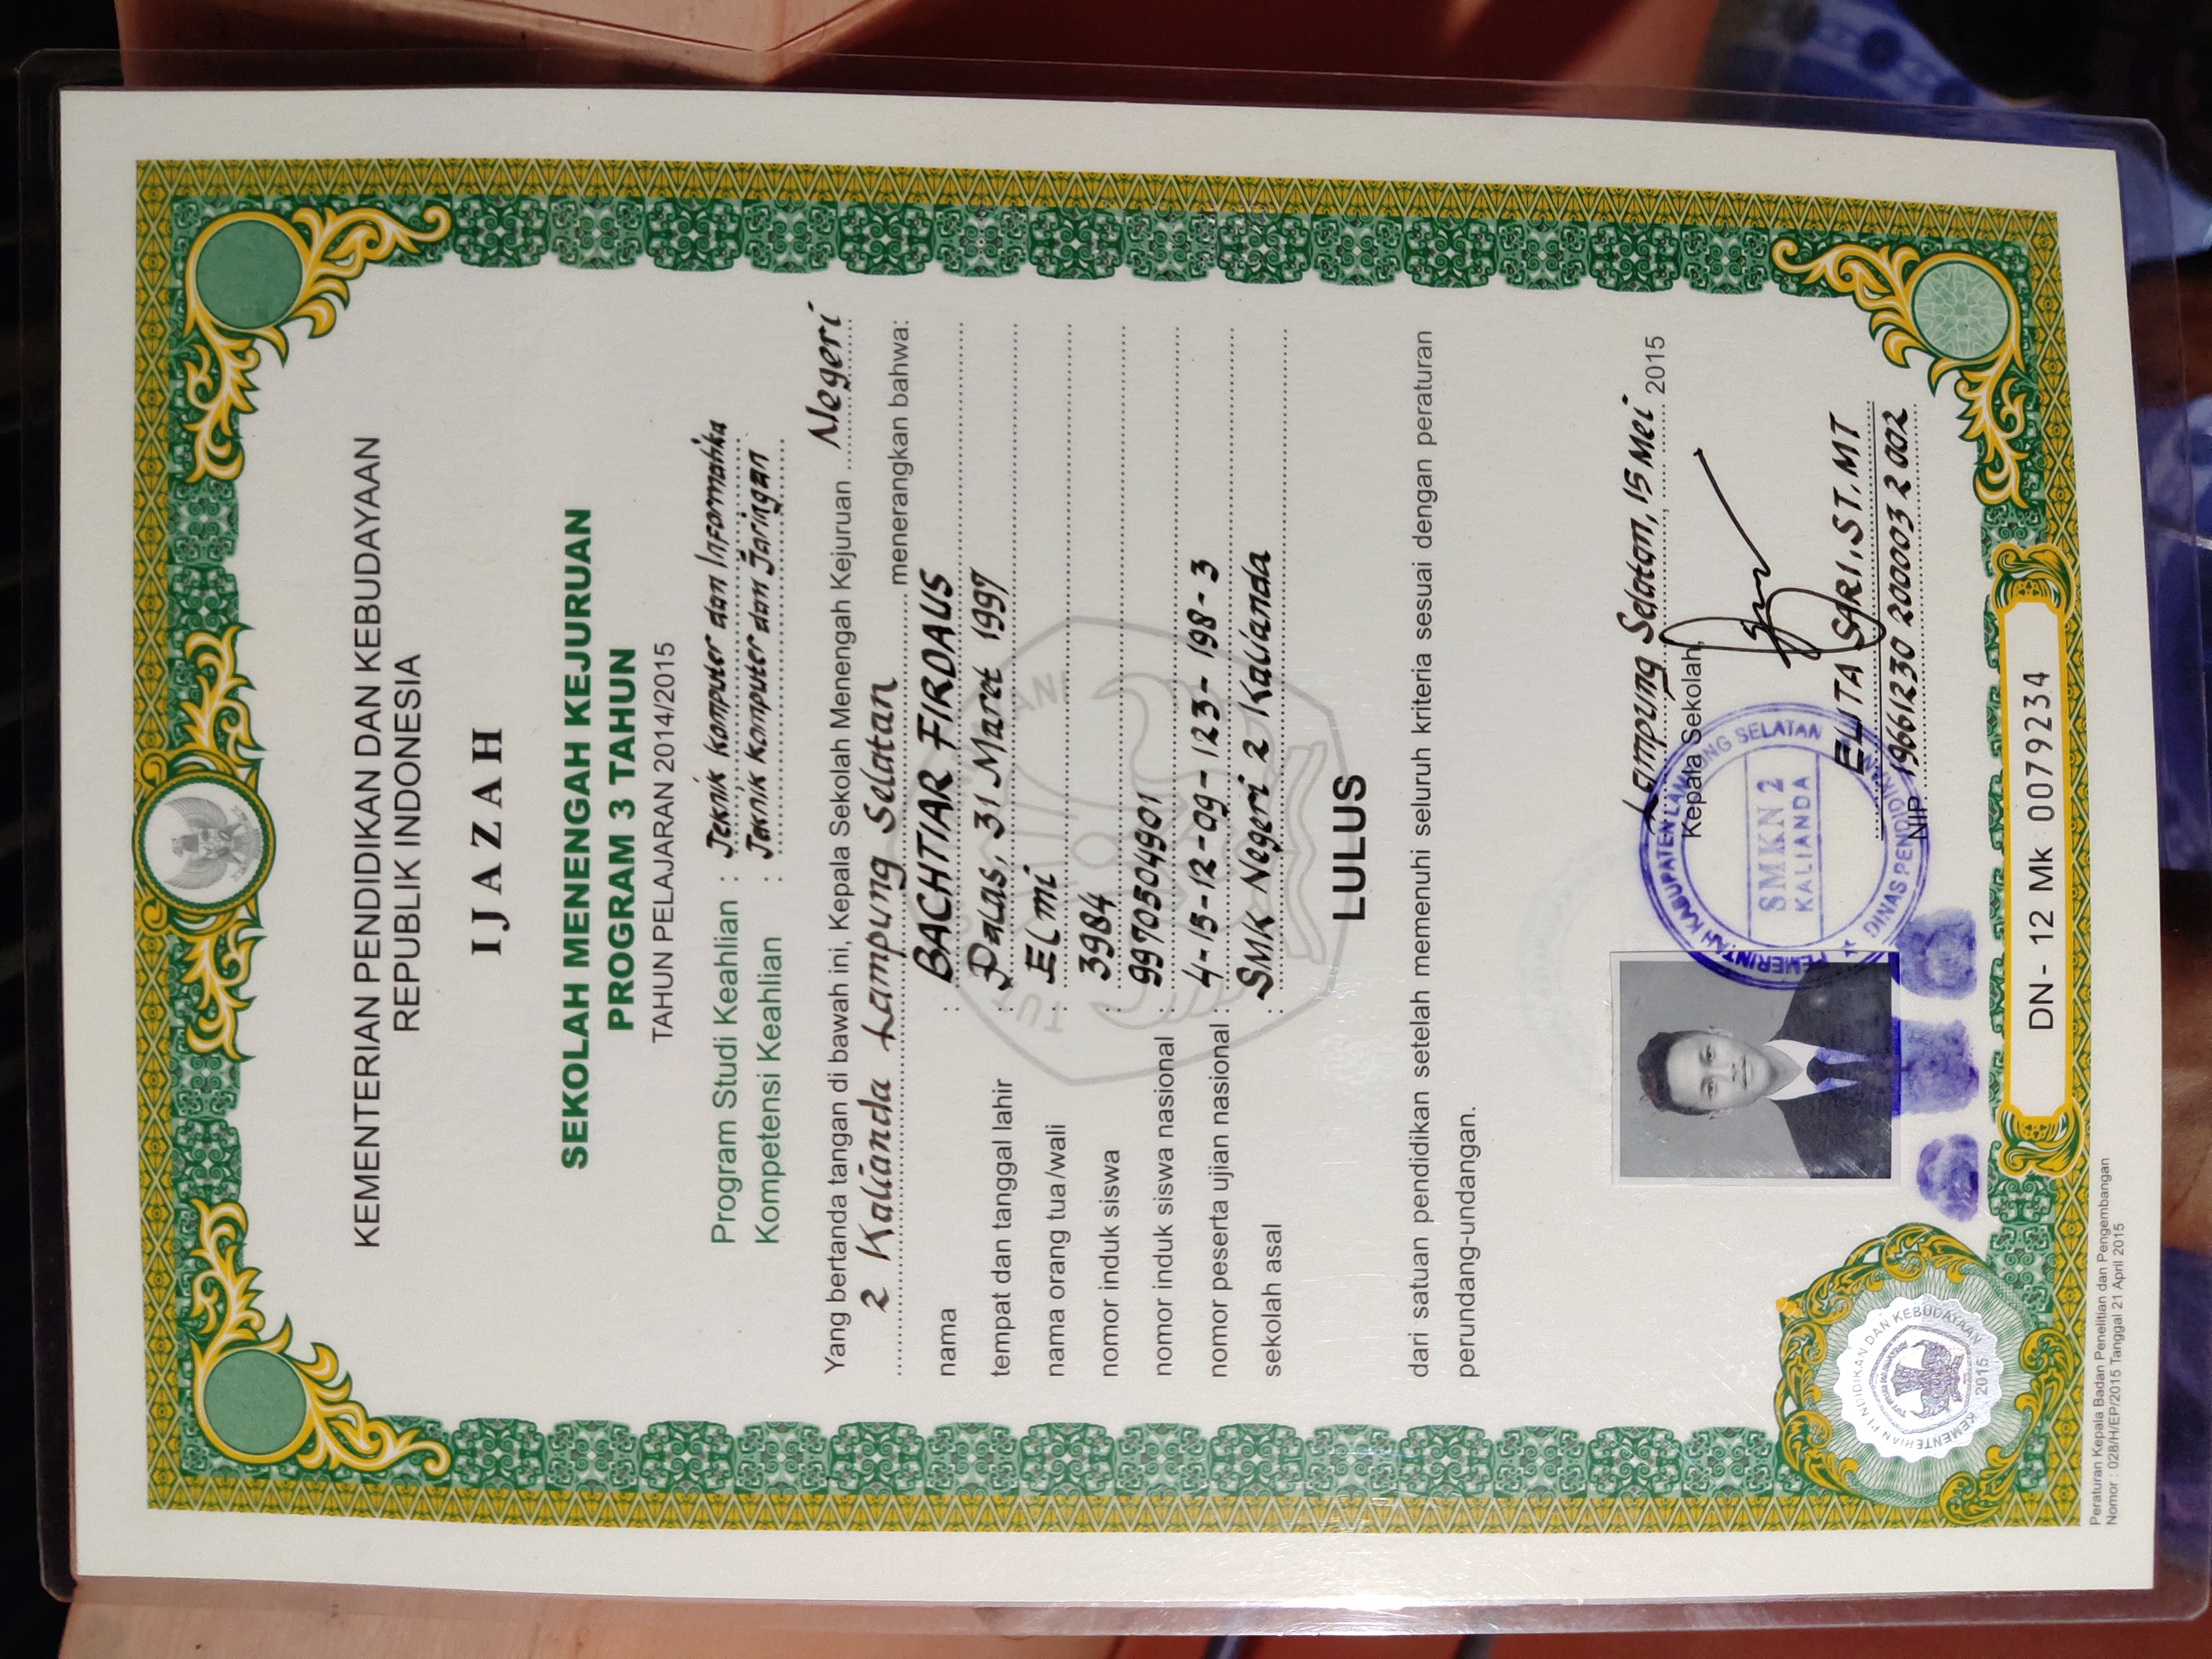 KEMENTERIAN PENDIDIKAN DAN KEBUDAYAAN
REPUBLIK INDONESIA
IJAZAH
SEKOLAH MENENGAH KEJURUAN
PROGRAM 3 TAHUN
TAHUN PELAJARAN 2014/2015
Program Studi Keahlian : Teknik Komputer dan Informatika
Kompetensi Keahlian : Teknik Komputer dan Jaringan
Yang bertanda tangan di bawah ini, Kepala Sekolah Menengah Kejuruan Negeri
2 Kalianda Lampung Selatan menerangkan bahwa:
nama : BACHTIAR FIRDAUS
tempat dan tanggal lahir : Palas, 31 Maret 1997
nama orang tua/wali : Elmi
nomor induk siswa : 3984
nomor induk siswa nasional : 9970504901
nomor peserta ujian nasional : 4-15-12-09-123-198-3
sekolah asal : SMK Negeri 2 Kalianda
LULUS
dari satuan pendidikan setelah memenuhi seluruh kriteria sesuai dengan peraturan
perundang-undangan.
Lampung Selatan, 15 Mei 2015
Kepala Sekolah,
PEMERINTAH KABUPATEN LAMPUNG SELATAN
SMKN 2
KALIANDA
DINAS PENDIDIKAN
ELITA SARI, ST, MT
NIP 19661230 200003 2 002
KEMENTERIAN PENDIDIKAN DAN KEBUDAYAAN
2015
DN- 12 Mk 0079234
Peraturan Kepala Badan Penelitian dan Pengembangan
Nomor : 028/H/EP/2015 Tanggal 21 April 2015